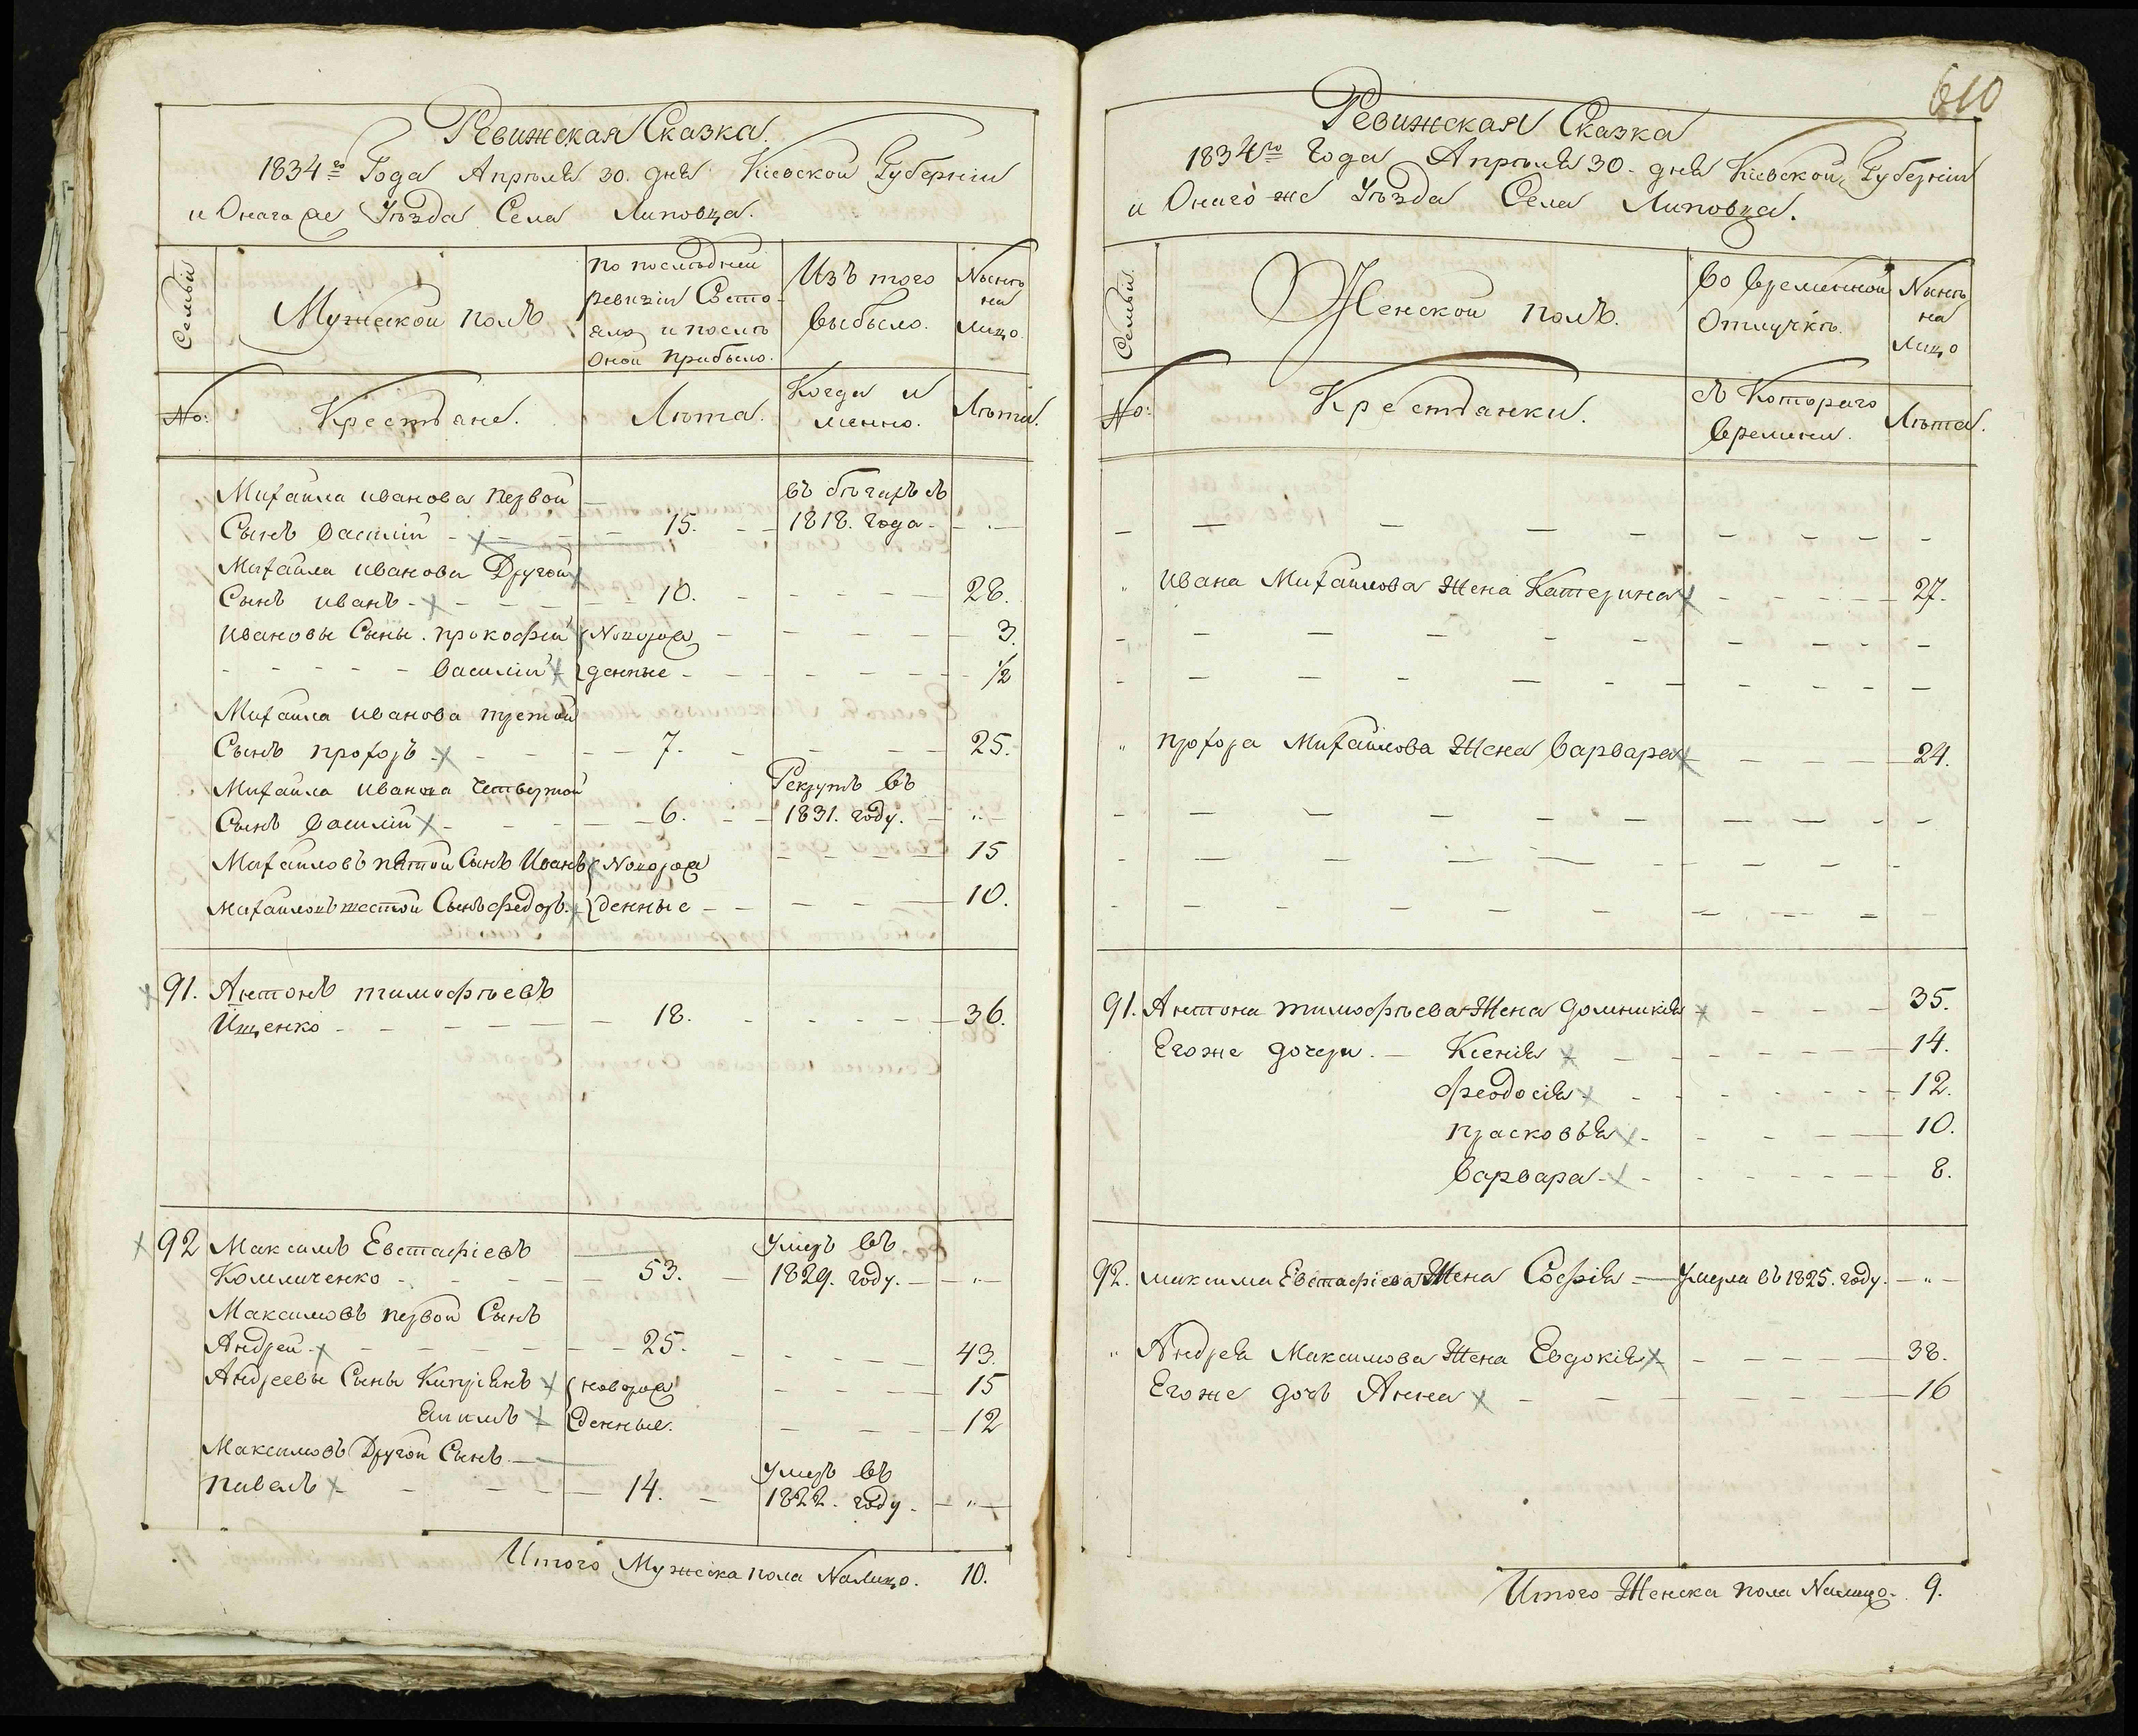 Ревижская Сказка.
1834го Года Апрѣля 30. дня Кіевской Губерніи
и Онаго же Уѣзда Села Липовца.
Семьи
Мужеской полъ
по послѣдней
ревизіи Состо-
яло и послѣ
Оной прибыло.
Изъ того
выбыло.
Нынѣ
на
Лицо.
No:
Крестьяне.
Лѣта.
Когда и
менно.
Лѣта.
Михайла иванова первой
Сынъ василій - 15. - въ бѣгахъ съ 1818. года - " -
Михайла иванова Другой
Сынъ иванъ - 10. - 28.
ивановы Сыны. прокофій Новорож - 3.
василій денные - 1/2
Михайла иванова третій
Сынъ прохоръ - 7. - 25.
Михайла иванова Четвертой
Сынъ василій - 6. - Рекрутъ въ 1831. году. - " -
Михайловъ пятой Сынъ Иванъ Новорож - 15
Михайловъ шестой Сынъ федоръ. денные - 10.
91. Антонъ тимофѣевъ
Ищенко - 18. - 36.
92 Максимъ Евстафіевъ
Комличенко - 53. - Умеръ въ 1829. году. - " -
Максимовъ первой Сынъ
Андрей - 25. - 43.
Андреевы Сыны Кипріянъ новорож - 15
Якимъ денные. - 12
Максимовъ Другой Сынъ. -
павелъ - 14. - Умеръ въ 1822. году - " -
Итого Мужеска пола Налицо. 10.
610
Ревижская Сказка
1834го Года Апрѣля 30. дня Кіевской Губерніи
и Онаго же Уѣзда Села Липовца.
Семьи.
Женской полъ.
Во временной
Отлучкѣ.
Нынѣ
на
Лицо
No:
Крестьянки.
съ Котораго
времини.
Лѣта.
" ивана Михайлова Жена Катерина - 27.
" прохора Михайлова Жена варвара - 24.
91. Антона тимофѣева Жена домникія - 35.
Егоже дочери. - Ксенія - 14.
феодосія - 12.
прасковья - 10.
варвара - 8.
92. максима Евстафіева Жена Софія - Умерла въ 1825. году. - " -
" Андрея Максимова Жена Евдокія - 38.
Егоже дочь Анна - 16
Итого Женска пола Налицо. 9.